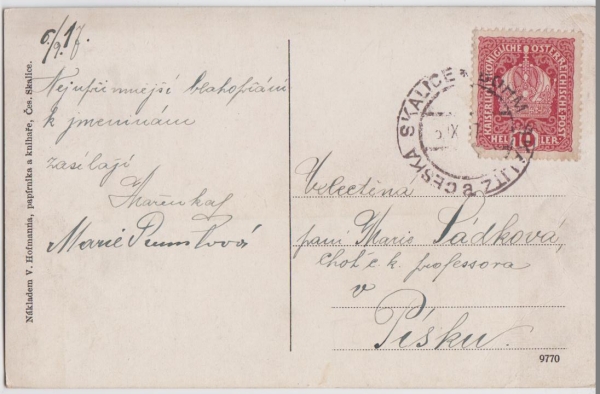 6/9. 17.
Nejupřímnější blahopřání
k jmeninám
zasílají
Mařenka
Marie
Nákladem V. Hofmanna, papírníka a knihaře, Čes. Skalice.
KAISERLICH KÖNIGLICHE ÖSTERREICHISCHE POST
10
HELLER
ČESKÁ SKALICE
Velectěná
paní Marie Sádková,
choť c. k. professora
v
Písku.
9770